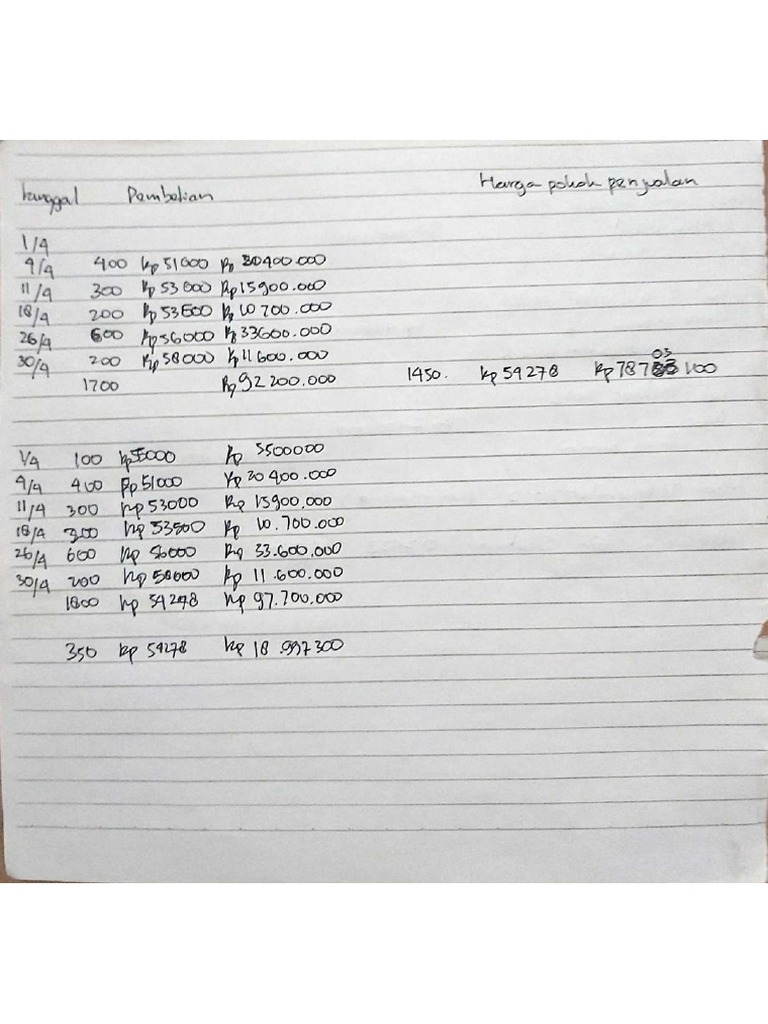 tanggal Pembelian Harga pokok penjualan
1/4
9/4 400 Rp 51000 Rp 20400.000
11/4 300 Rp 53000 Rp 15900.000
18/4 200 Rp 53500 Rp 10700.000
26/4 600 Rp 56000 Rp 33600.000
30/4 200 Rp 58000 Rp 11600.000
1700 Rp 92200.000 1450. Rp 54278 Rp 78703100
1/4 100 Rp 55000 Rp 5500000
9/4 400 Rp 51000 Rp 20400.000
11/4 300 Rp 53000 Rp 15900.000
18/4 200 Rp 53500 Rp 10.700.000
26/4 600 Rp 56000 Rp 33.600.000
30/4 200 Rp 58000 Rp 11.600.000
1800 Rp 54278 Rp 97.700.000
350 Rp 54278 Rp 18.997300